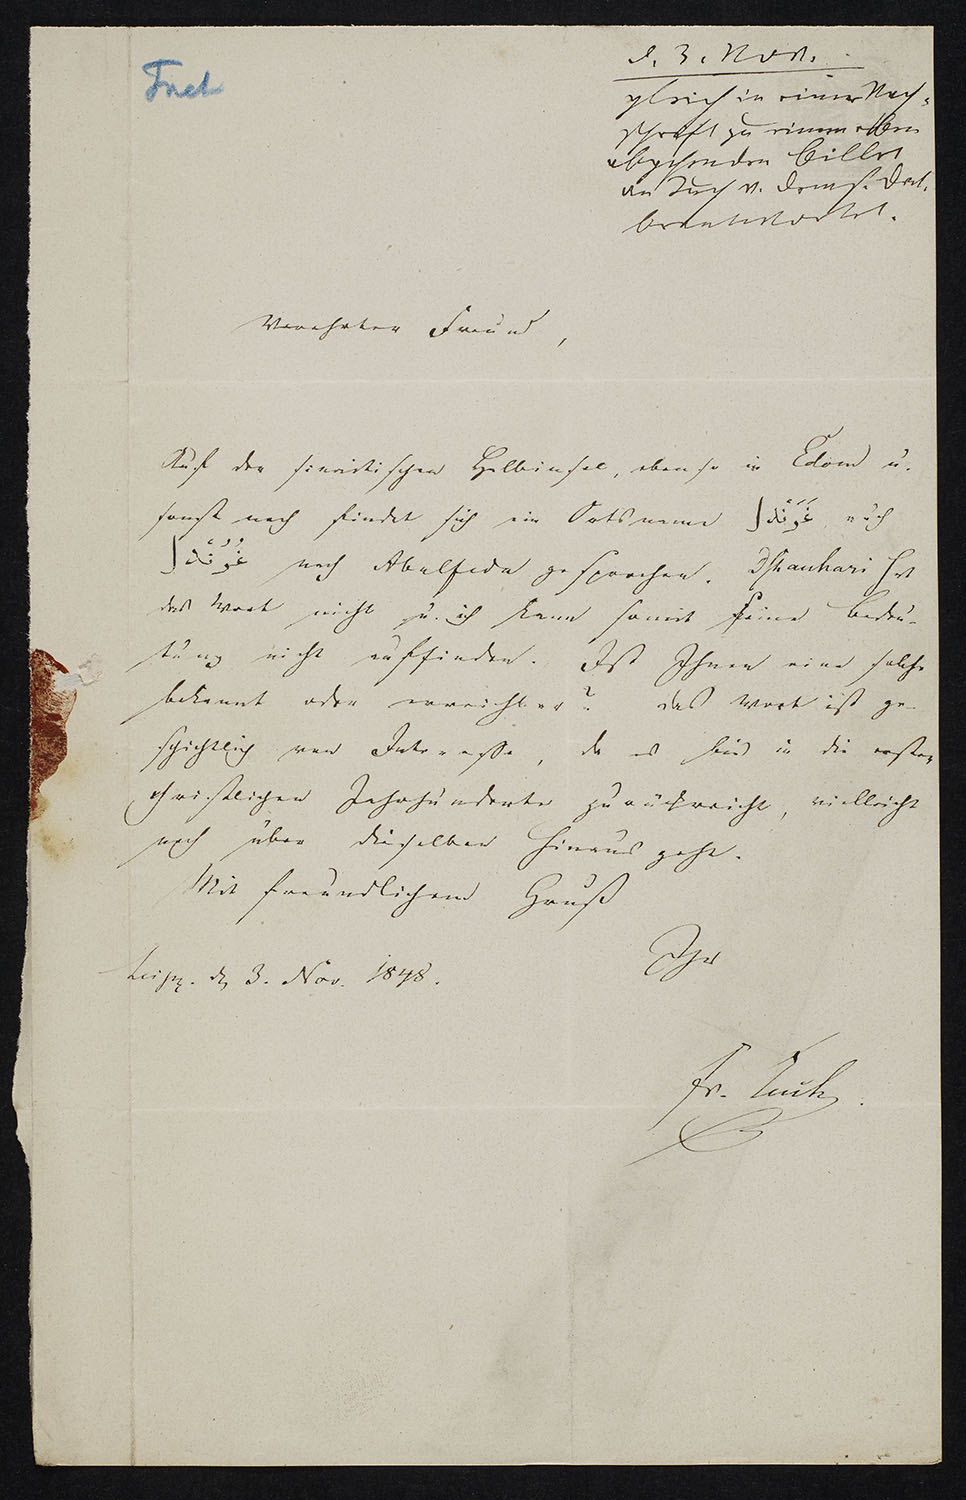 Tuch
d. 3. Nov.
gleich in einer Nach-
schrift zu einem eben
abgehenden Billet
an Tuch v. dems. Dat.
beantwortet.
Verehrter Freund,
Auf der sinaitischen Halbinsel, ebenso in Edom u.
sonst noch findet sich ein Ortsname غَرَنْدَل auch
غُرُنْدُل nach Abulfeda gesprochen. Dshauhari hat
das Wort nicht u. ich kann somit seine Bedeu-
tung nicht auffinden. Ist Ihnen eine solche
bekannt oder erreichbar? Das Wort ist ge-
schichtlich von Interesse, da es bis in die ersten
christlichen Jahrhunderte zurückreicht, vielleicht
noch über dieselben hinaus geht.
Mit freundlichem Gruß
Ihr
Leipz. d. 3. Nov. 1848.
Fr. Tuch.